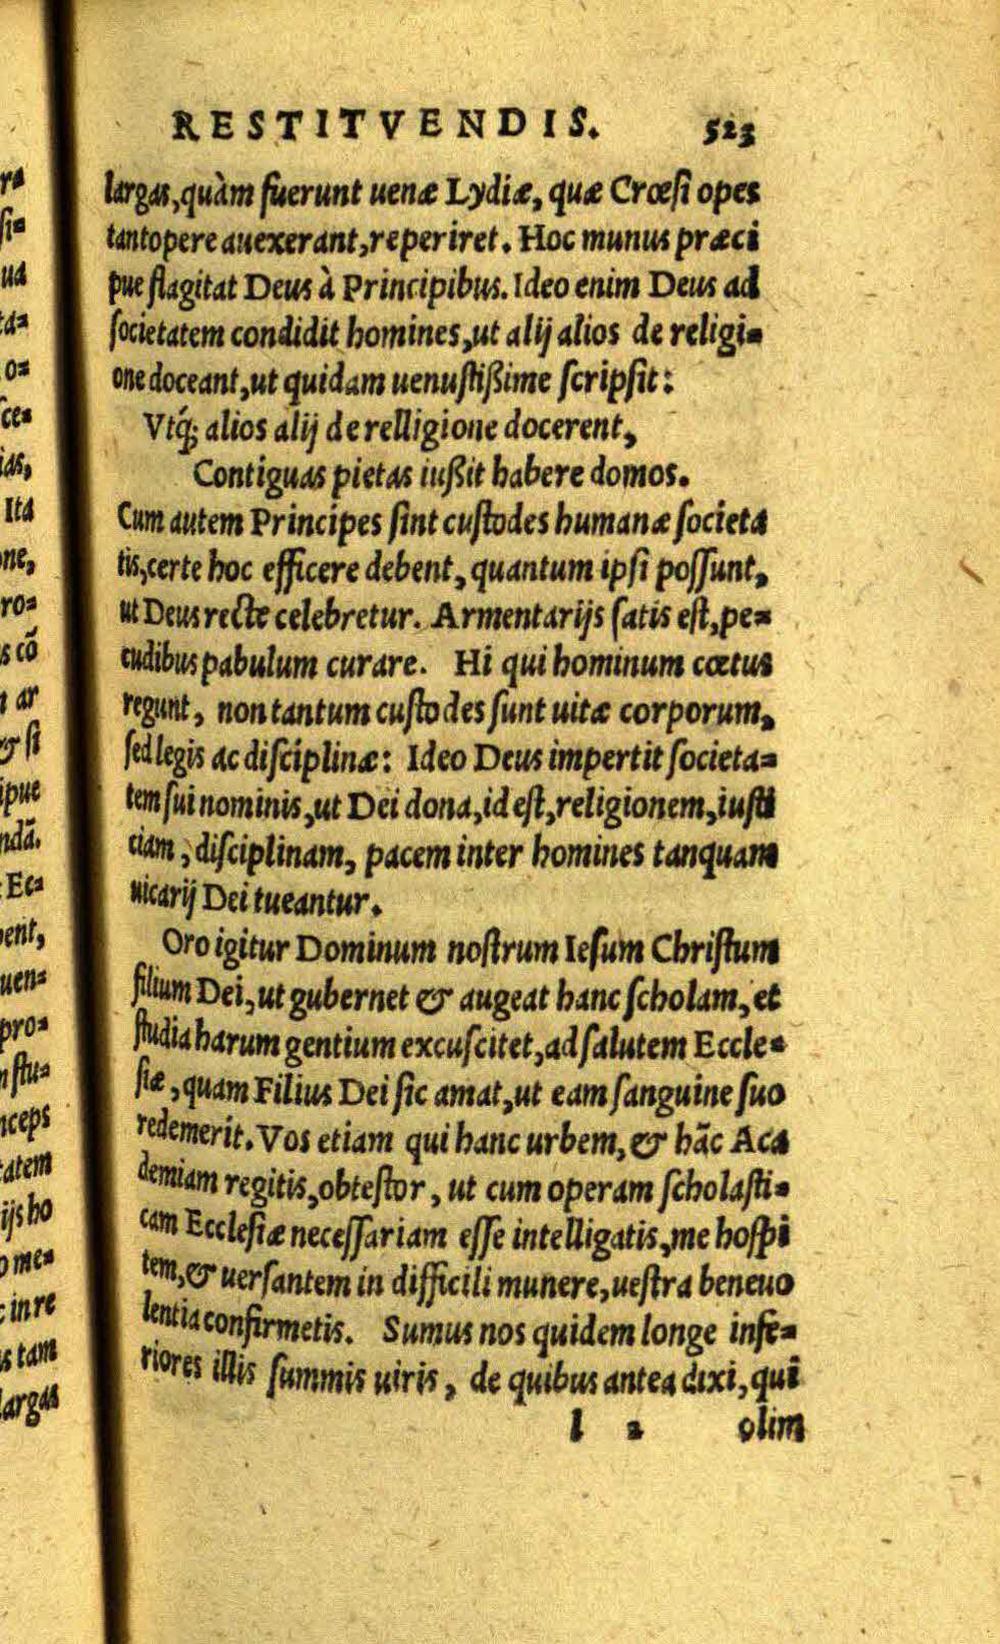 RESTITVENDIS. 523
largas, quàm fuerunt uenæ Lydiæ, quæ Crœsi opes
tantopere auexerant, reperiret. Hoc munus præci
pue flagitat Deus à Principibus. Ideo enim Deus ad
societatem condidit homines, ut alij alios de religi=
one doceant, ut quidam uenustißime scripsit:
Vtq́; alios alij de relligione docerent,
Contiguas pietas iußit habere domos.
Cum autem Principes sint custodes humanæ societa
tis, certe hoc efficere debent, quantum ipsi possunt,
ut Deus recte celebretur. Armentarijs satis est, pe=
cudibus pabulum curare. Hi qui hominum cœtus
regunt, non tantum custodes sunt uitæ corporum,
sed legis ac disciplinæ: Ideo Deus impertit societa=
tem sui nominis, ut Dei dona, id est, religionem, iusti
ciam, disciplinam, pacem inter homines tanquam
uicarij Dei tueantur.
Oro igitur Dominum nostrum Iesum Christum
filium Dei, ut gubernet & augeat hanc scholam, et
studia harum gentium excuscitet, ad salutem Eccle=
siæ, quam Filius Dei sic amat, ut eam sanguine suo
redemerit. Vos etiam qui hanc urbem, & hãc Aca
demiam regitis, obtestor, ut cum operam scholasti=
cam Ecclesiæ necessariam esse intelligatis, me hospi
tem, & uersantem in difficili munere, uestra beneuo
lentia confirmetis. Sumus nos quidem longe infe=
riores illis summis uiris, de quibus antea dixi, qui
l 2 olim